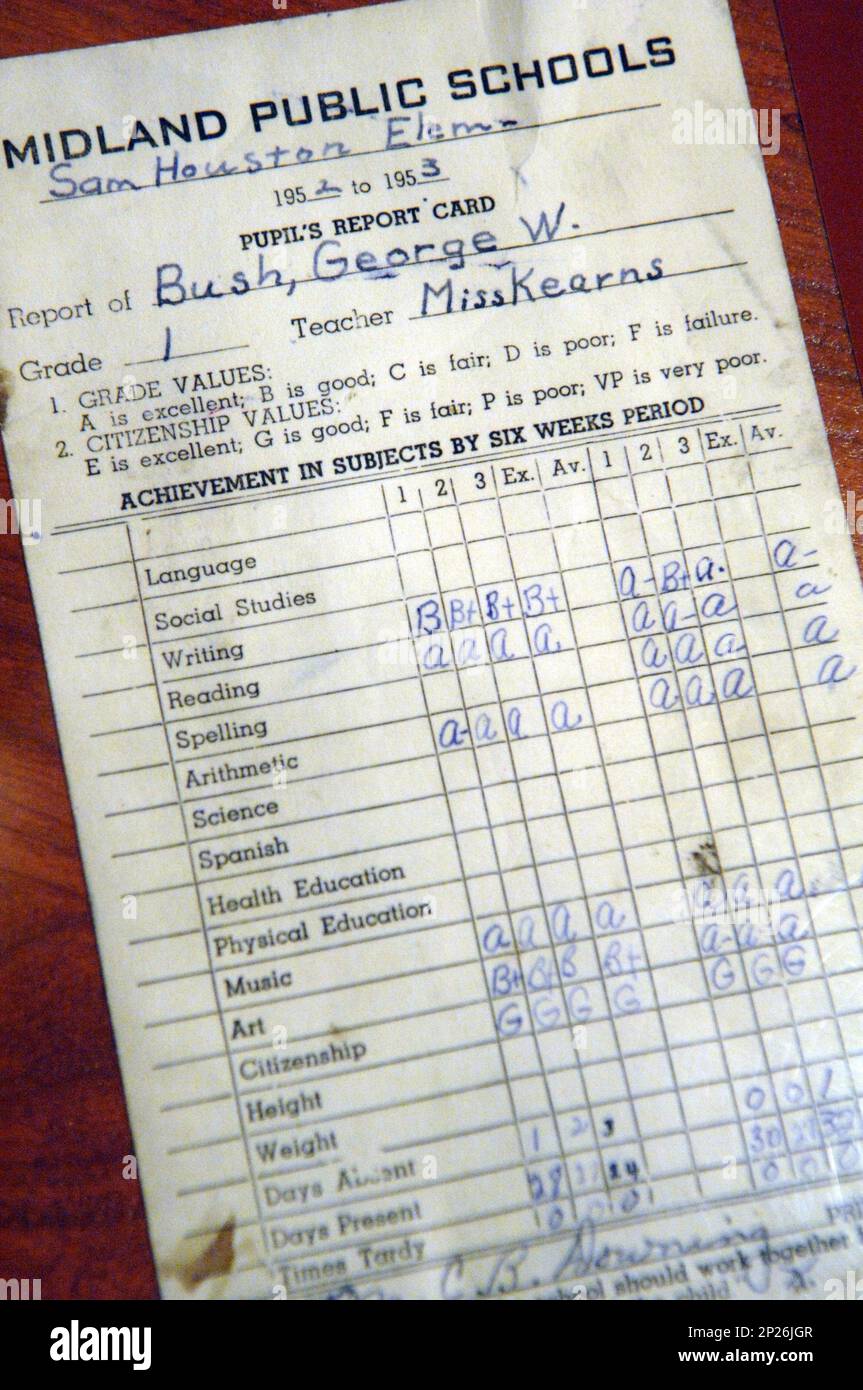 MIDLAND PUBLIC SCHOOLS
Sam Houston Elem.
1952 to 1953
PUPIL'S REPORT CARD
Report of Bush, George W.
Grade 1 Teacher Miss Kearns
1. GRADE VALUES:
A is excellent; B is good; C is fair; D is poor; F is failure.
2. CITIZENSHIP VALUES:
E is excellent; G is good; F is fair; P is poor; VP is very poor.
ACHIEVEMENT IN SUBJECTS BY SIX WEEKS PERIOD
1 2 3 Ex. Av. 1 2 3 Ex. Av.
Language
Social Studies
Writing B B+ B+ B+ a- B+ a. a-
Reading a a a a a a- a a
Spelling a a a- a
Arithmetic a- a a a a a a a
Science
Spanish
Health Education
Physical Education
Music a a a a a a a
Art B+ B+ B B+ a- a- a
Citizenship G G G G G G G
Height
Weight
Days Absent 1 2 3 0 0 1
Days Present 24 30 30
Times Tardy 0 0 0 0 0 0
C. B. Downing PRI
school should work together
child
alamy
Image ID: 2P26JGR
www.alamy.com